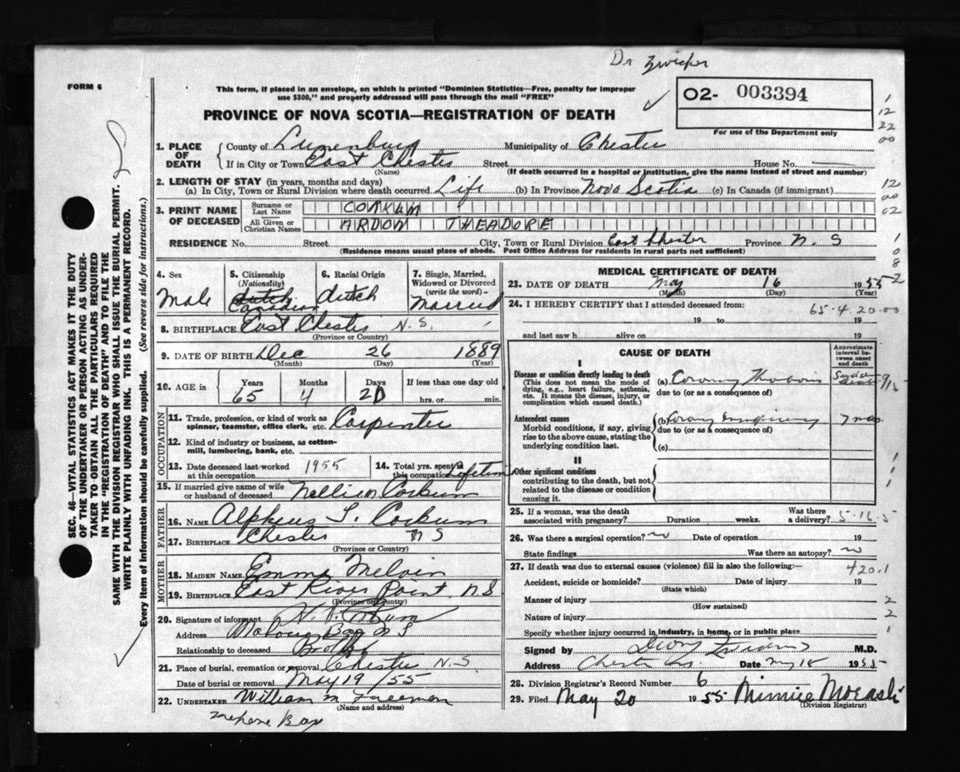 Dr Zwicker
FORM 6
This form, if placed in an envelope, on which is printed "Dominion Statistics—Free, penalty for improper
use $300," and properly addressed will pass through the mail "FREE"
O2- 003394
For use of the Department only
PROVINCE OF NOVA SCOTIA—REGISTRATION OF DEATH
1. PLACE OF DEATH County of Lunenburg Municipality of Chester
If in City or Town East Chester Street House No.
(Name) (If death occurred in a hospital or institution, give the name instead of street and number)
2. LENGTH OF STAY (in years, months and days)
(a) In City, Town or Rural Division where death occurred Life (b) In Province Nova Scotia (c) In Canada (if immigrant)
3. PRINT NAME OF DECEASED Surname or Last Name CORKUM
All Given or Christian Names ARDON THEADORE
RESIDENCE No. Street City, Town or Rural Division East Chester Province N.S
(Residence means usual place of abode. Post Office Address for residents in rural parts not sufficient)
4. Sex Male
5. Citizenship (Nationality) Dutch Canadian
6. Racial Origin dutch
7. Single, Married, Widowed or Divorced (write the word) Married
8. BIRTHPLACE East Chester N.S.
(Province or Country)
9. DATE OF BIRTH Dec 26 1889
(Month) (Day) (Year)
10. AGE in Years 65 Months 4 Days 20 If less than one day old hrs. or min.
OCCUPATION
11. Trade, profession, or kind of work as spinner, teamster, office clerk, etc. Carpenter
12. Kind of industry or business, as cotton-mill, lumbering, bank, etc.
13. Date deceased last worked at this occupation 1955 14. Total yrs. spent in this occupation Lifetime
15. If married give name of wife or husband of deceased Corkum
FATHER
16. NAME Alpheus Corkum
17. BIRTHPLACE Chester N S
(Province or Country)
MOTHER
18. MAIDEN NAME Emma Melvin
19. BIRTHPLACE East River Point N.S
(Province or Country)
20. Signature of informant Corkum
Address Mahone Bay N S
Relationship to deceased Brother
21. Place of burial, cremation or removal Chester N.S.
Date of burial or removal May 19/55
22. UNDERTAKER William M Freeman
(Name and address)
Mahone Bay
MEDICAL CERTIFICATE OF DEATH
23. DATE OF DEATH May 16 1955
(Month) (Day) (Year)
24. I HEREBY CERTIFY that I attended deceased from: 65-4.20.00
19 to 19
and last saw h alive on 19
CAUSE OF DEATH
Approximate interval between onset and death
I
Disease or condition directly leading to death
(This does not mean the mode of dying, e.g., heart failure, asthenia, etc. It means the disease, injury, or complication which caused death.)
(a) Coronary Thrombosis
due to (or as a consequence of)
Antecedent causes
Morbid conditions, if any, giving rise to the above cause, stating the underlying condition last.
(b) Coronary
due to (or as a consequence of)
(c)
II
Other significant conditions
contributing to the death, but not related to the disease or condition causing it.
25. If a woman, was the death associated with pregnancy? Duration weeks. Was there a delivery? 5-16.5
26. Was there a surgical operation? no Date of operation
State findings Was there an autopsy? no
27. If death was due to external causes (violence) fill in also the following:— 420.1
Accident, suicide or homicide? Date of injury 19
(State which)
Manner of injury
(How sustained)
Nature of injury
Specify whether injury occurred in industry, in home, or in public place
Signed by M.D.
Address Chester N.S. Date May 18 1955
28. Division Registrar's Record Number 6
29. Filed May 20 1955 Minnie Morash
(Division Registrar)
SEC. 46—VITAL STATISTICS ACT MAKES IT THE DUTY
OF THE UNDERTAKER OR PERSON ACTING AS UNDER-
TAKER TO OBTAIN ALL THE PARTICULARS REQUIRED
IN THE "REGISTRATION OF DEATH" AND TO FILE THE
SAME WITH THE DIVISION REGISTRAR WHO SHALL ISSUE THE BURIAL PERMIT.
WRITE PLAINLY WITH UNFADING INK. THIS IS A PERMANENT RECORD.
Every item of information should be carefully supplied. (See reverse side for instructions.)